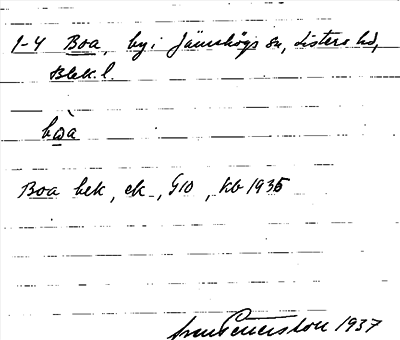 1-4 Boa, by i Jämshögs sn, Listers hd,
Blek. l.
bωà
Boa bek, ek, G10, Kb 1935
1937